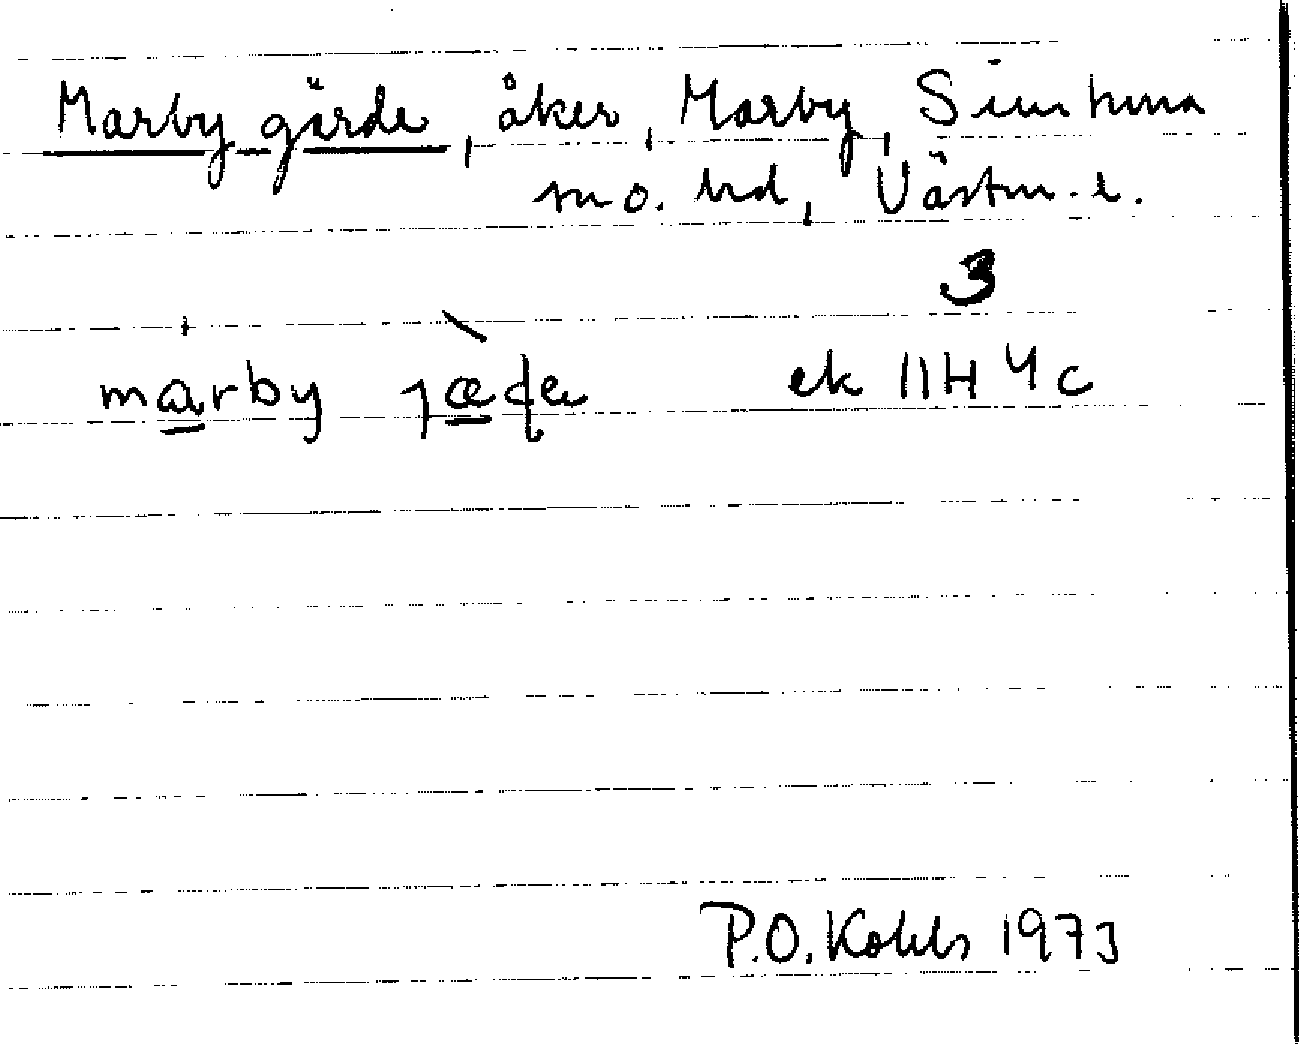 Marby gärde, åker, Marby, Simtuna
sn o. hd, Västm. l.
3
marby jæɖe ek 11H 4c
P.O. Kohls 1973